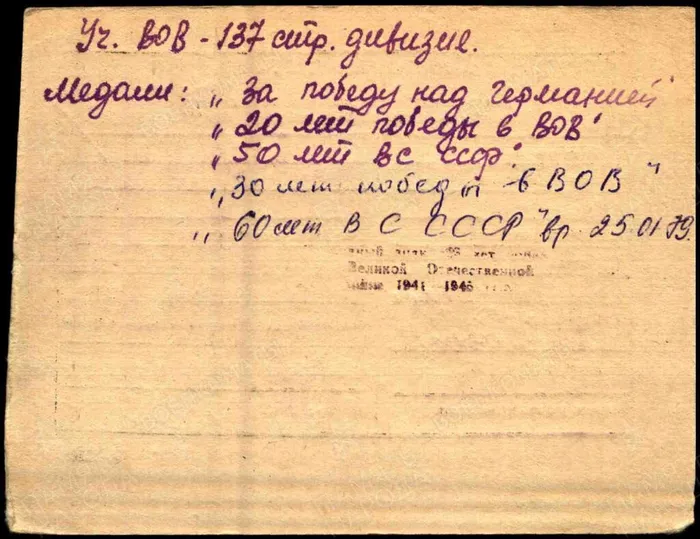 Уч. ВОВ - 137 стр. дивизие.
Медали: „За победу над Германией"
„20 лет победы в ВОВ"
„50 лет ВС СССР"
„30 лет победы в ВОВ"
„60 лет ВС СССР" вр. 25.01.79.
знак лет
Великой Отечественной
1941 1945